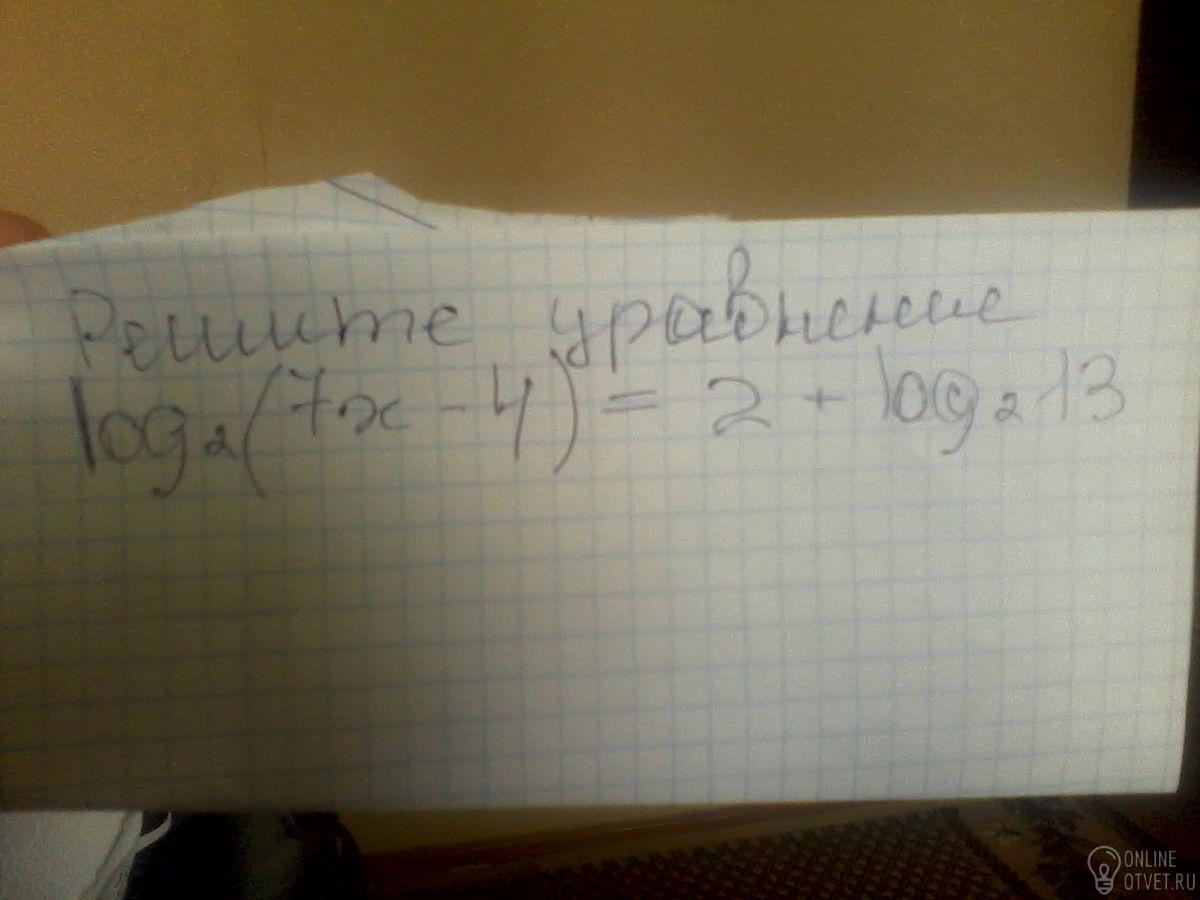 Решите уравнение
log₂(7x - 4) = 2 + log₂13
ONLINE
OTVET.RU